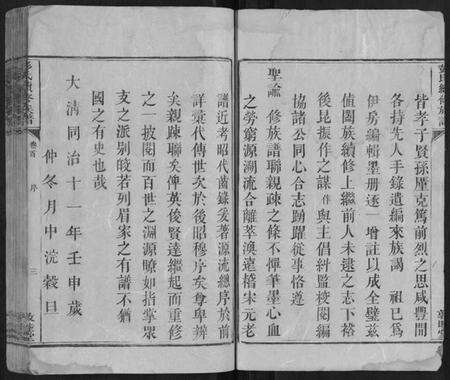 皆孝子賢孫厪克篤前烈之思咸豐間
各持先人手錄遺編來族謁 祖已為
伊房編輯墨册逐一增註以成全璧茲
値闔族續修上繼前人未逮之志下裕
後昆振作之謀作與主倡糾暨校閱編
協諸公同心合志踴躍從事恪道
聖諭修族譜聯親疎之條不憚筆墨心血
之勞窮源溯流合離萃渙遠稽宋元老
譜近考昭代齒錄爰著源流總序於前
詳彙代傳世次於後昭穆序矣尊卑辨
矣親疎聯矣俾英後賢達繼起而重修
之一披閱而百世之淵源瞭如指掌眾
支之派別皎若列眉家之有譜不猶
國之有史也哉
大清同治十一年壬申歲
仲冬月中浣穀旦
卷首 序 三